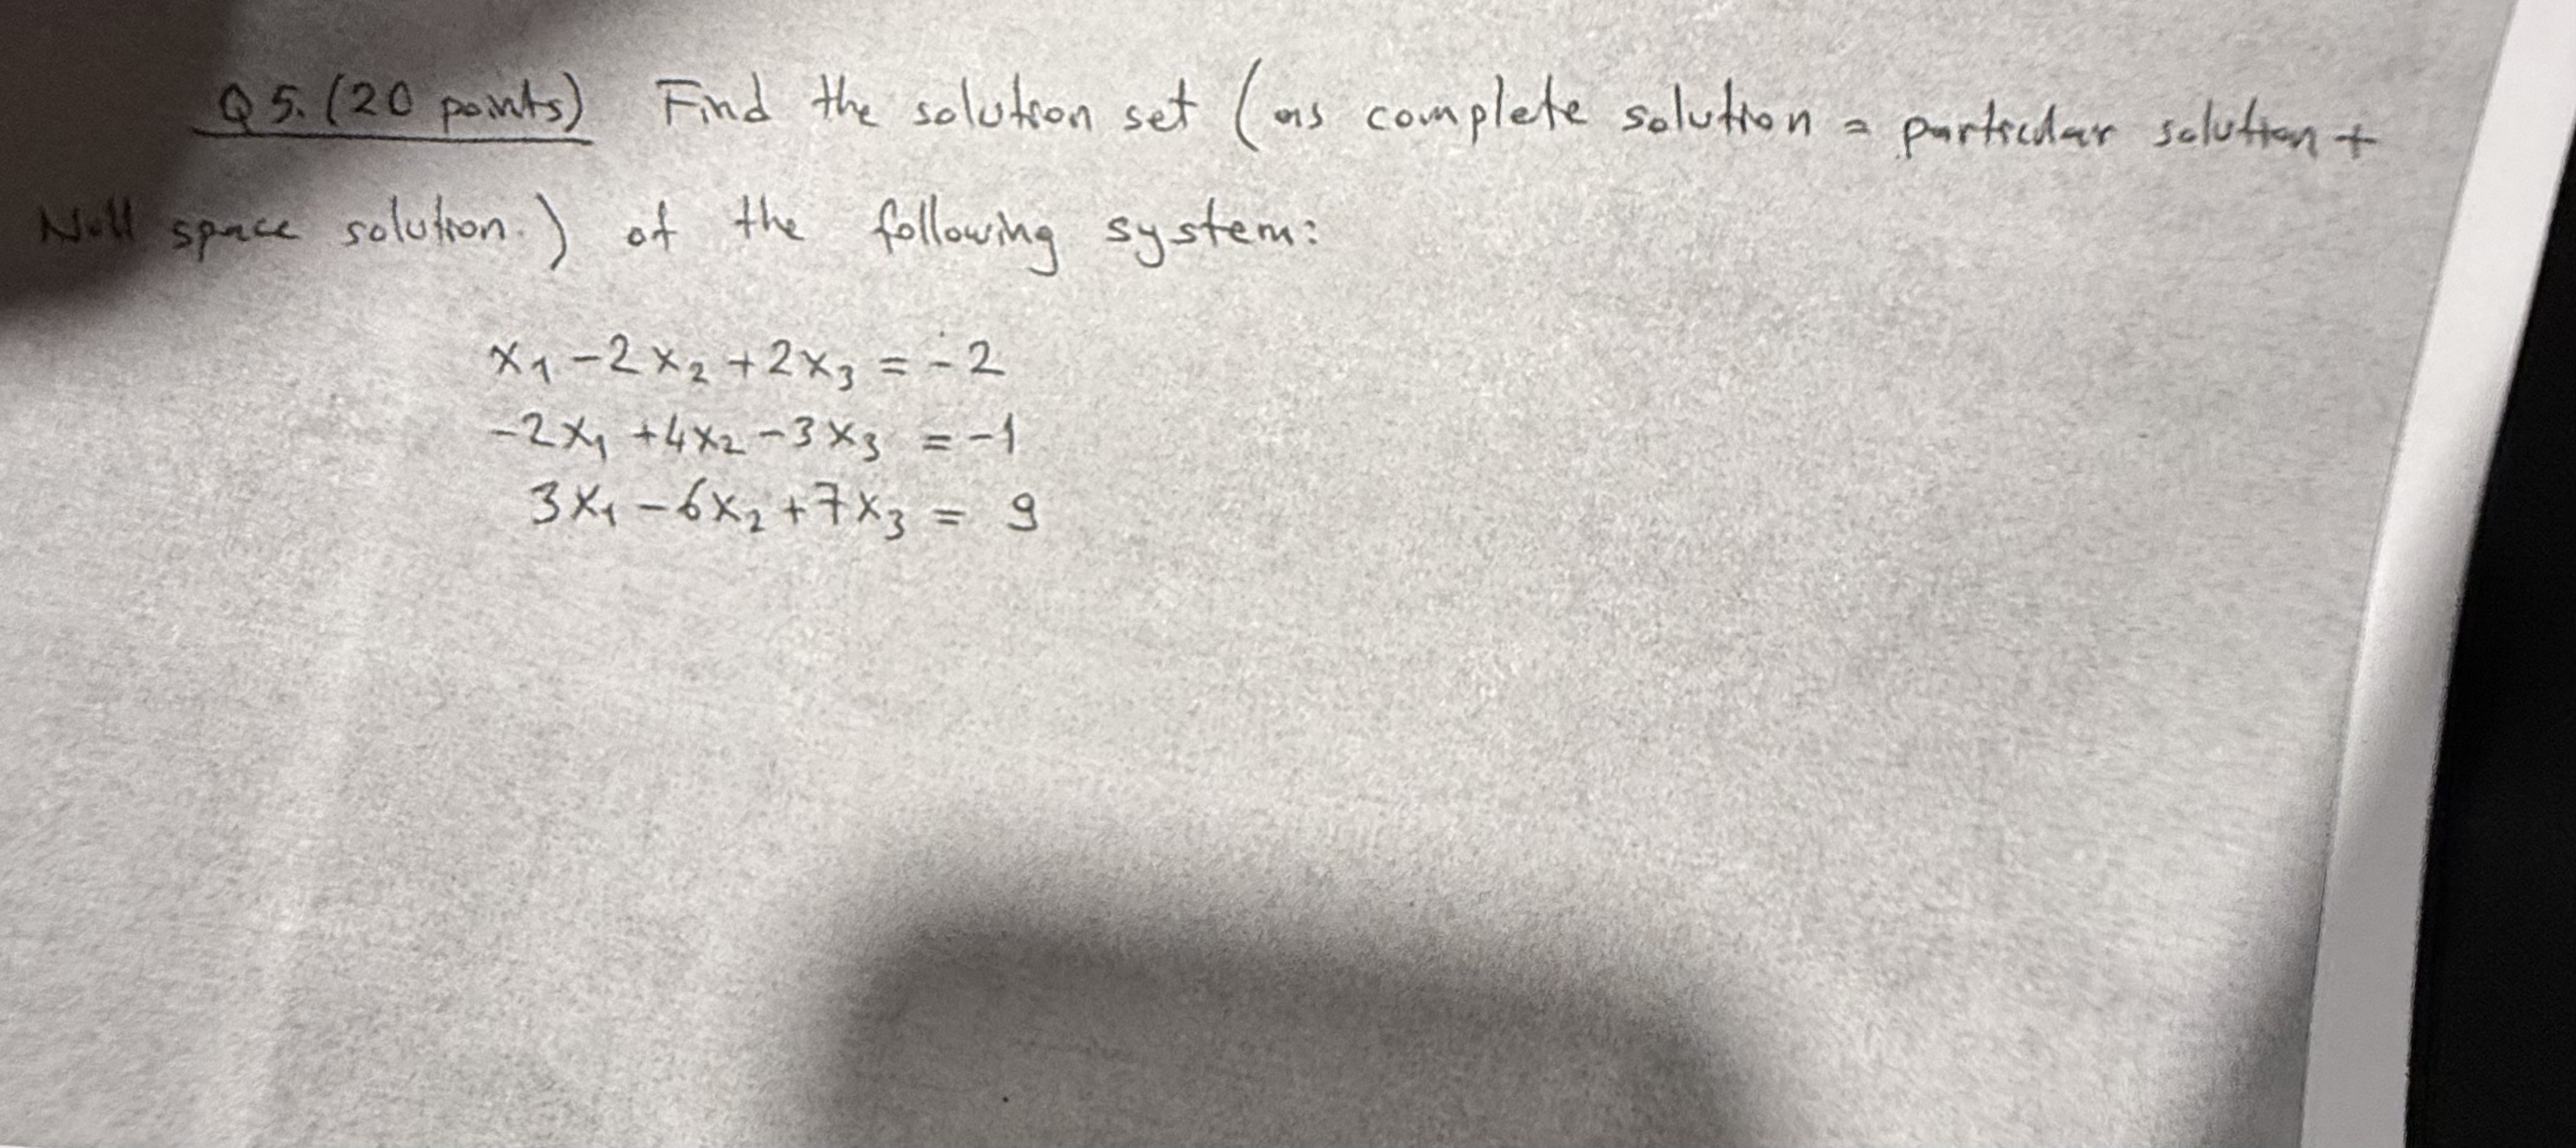 Q5. (20 points) Find the solution set (as complete solution = particular solution +
Null space solution.) of the following system:
x₁ - 2x₂ + 2x₃ = -2
-2x₁ + 4x₂ - 3x₃ = -1
3x₁ - 6x₂ + 7x₃ = 9